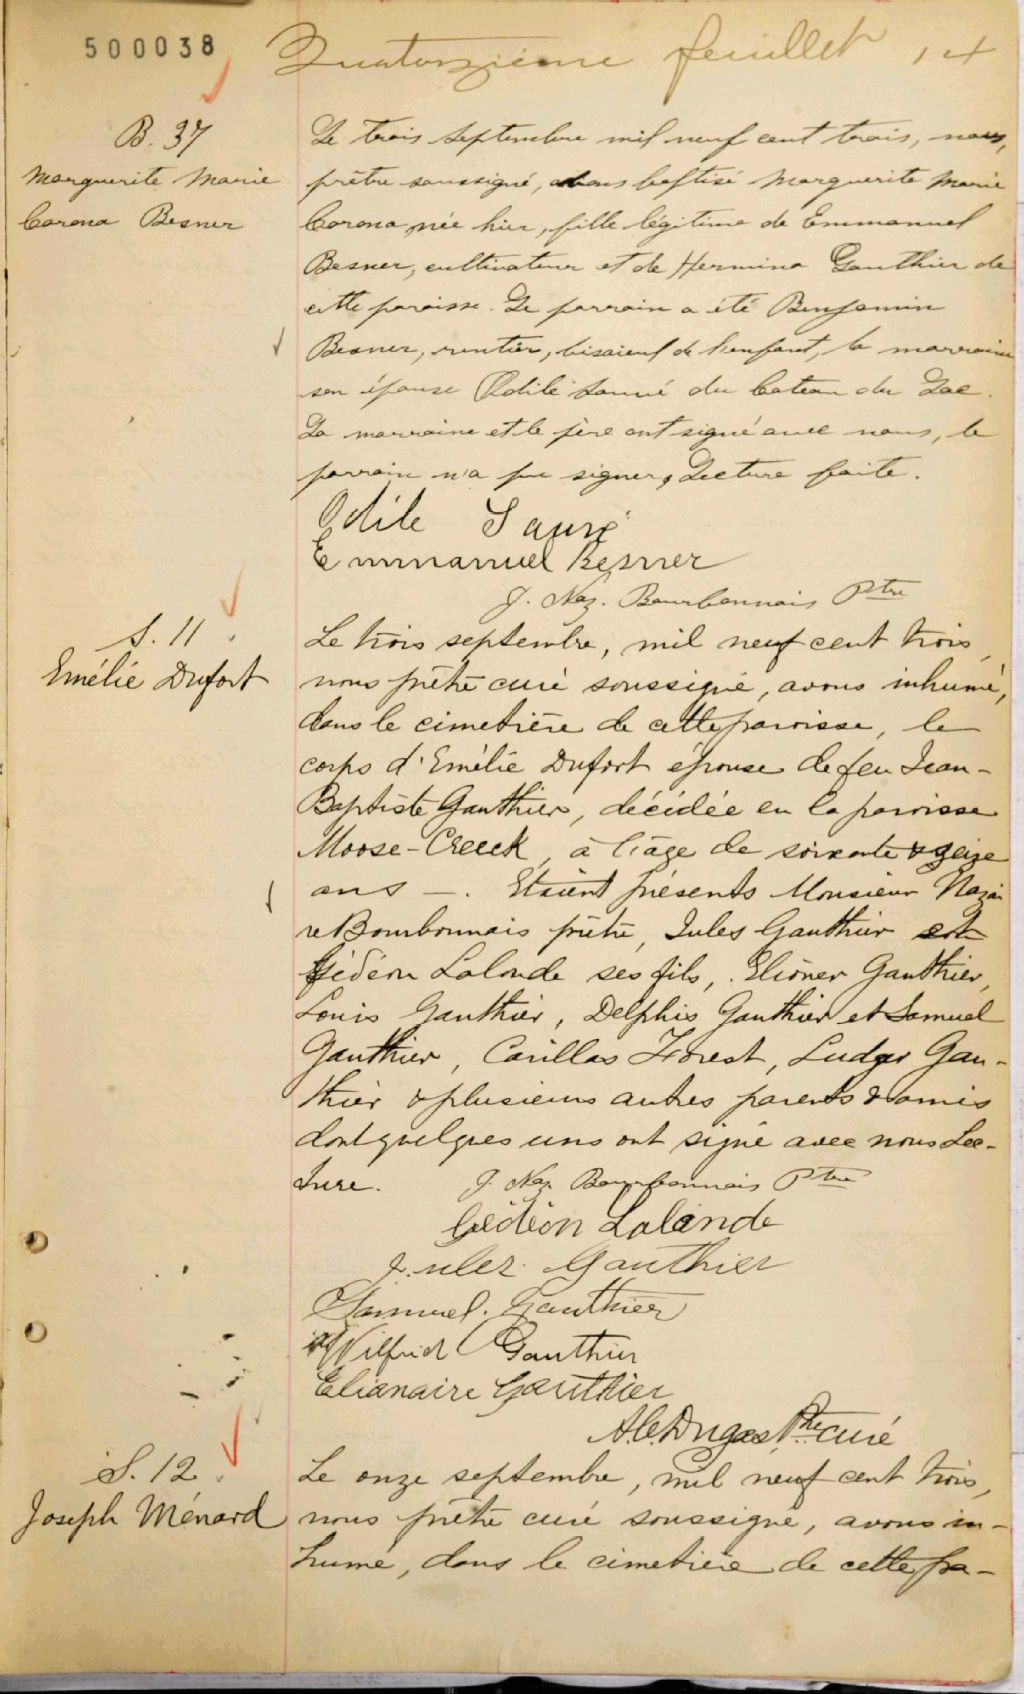 500038 Quatorzième feuillet 14
B. 37
Marguerite Marie
Corona Besner
Le trois septembre mil neuf cent trois, nous,
prêtre soussigné, avons baptisé Marguerite Marie
Corona, née hier, fille légitime de Emmanuel
Besner, cultivateur et de Hermina Gauthier de
cette paroisse. Le parrain a été Benjamin
Besner, rentier, bisaïeul de l'enfant, la marraine
son épouse Odile Sauvé du Coteau du Lac.
La marraine et le père ont signé avec nous, le
parrain n'a pu signer, Lecture faite.
Odile Sauvé
Emmanuel Besner
J. Naz. Bourbonnais Ptre
S. 11
Emélie Dufort
Le trois septembre, mil neuf cent trois,
nous prêtre curé soussigné, avons inhumé,
dans le cimetière de cette paroisse, le
corps d'Emélie Dufort épouse de feu Jean-
Baptiste Gauthier, décédée en la paroisse
Moose-Creeck, à l'âge de soixante & seize
ans —. Etaient présents Monsieur Nazai
re Bourbonnais prêtre, Jules Gauthier et
Gédéon Lalonde ses fils, Elioner Gauthier,
Louis Gauthier, Delphis Gauthier et Samuel
Gauthier, Carillas Forest, Ludger Gau-
thier & plusieurs autres parents & amis
dont quelques uns ont signé avec nous Lec-
ture. J. Naz. Bourbonnais Ptre
Gédéon Lalonde
Jules Gauthier
Samuel Gauthier
Wilfrid Gauthier
Elianaire Gauthier
A.C. Dugas Ptre curé
S. 12
Joseph Ménard
Le onze septembre, mil neuf cent trois,
nous prêtre curé soussigné, avons in-
humé, dans le cimetière de cette pa-